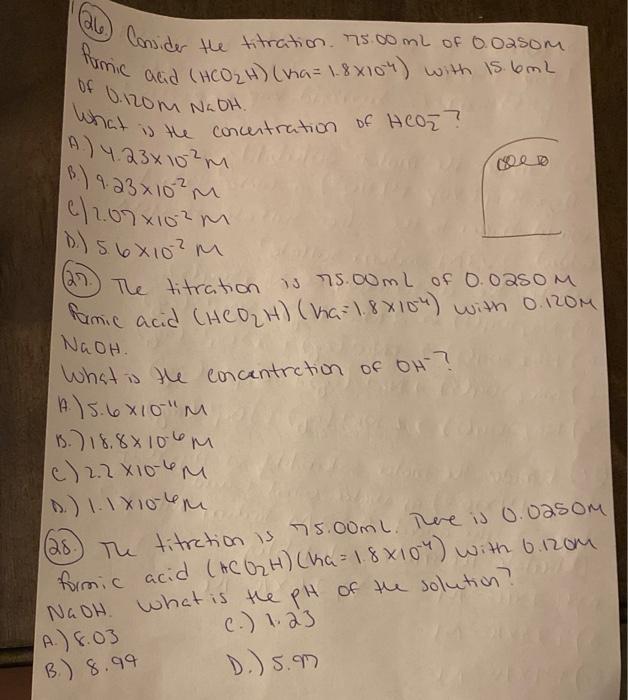 26.) Consider the titration. 75.00mL of 0.0250M
formic acid (HCO₂H) (Ka = 1.8×10⁻⁴) with 15.6mL
of 0.120M NaOH.
What is the concentration of HCO₂⁻?
A.) 4.23×10⁻² M
B.) 9.23×10⁻² M
C.) 2.07×10⁻² M
D.) 5.6×10⁻² M
27.) The titration is 75.00mL of 0.0250M
formic acid (HCO₂H) (Ka = 1.8×10⁻⁴) with 0.120M
NaOH.
What is the concentration of OH⁻?
A.) 5.6×10⁻¹¹ M
B.) 18.8×10⁻⁶ M
C.) 2.2×10⁻⁶ M
D.) 1.1×10⁻⁶ M
28.) The titration is 75.00mL. There is 0.0250M
formic acid (HCO₂H) (Ka = 1.8×10⁻⁴) with 0.120M
NaOH. What is the pH of the solution?
A.) 8.03 C.) 1.23
B.) 8.99 D.) 5.97